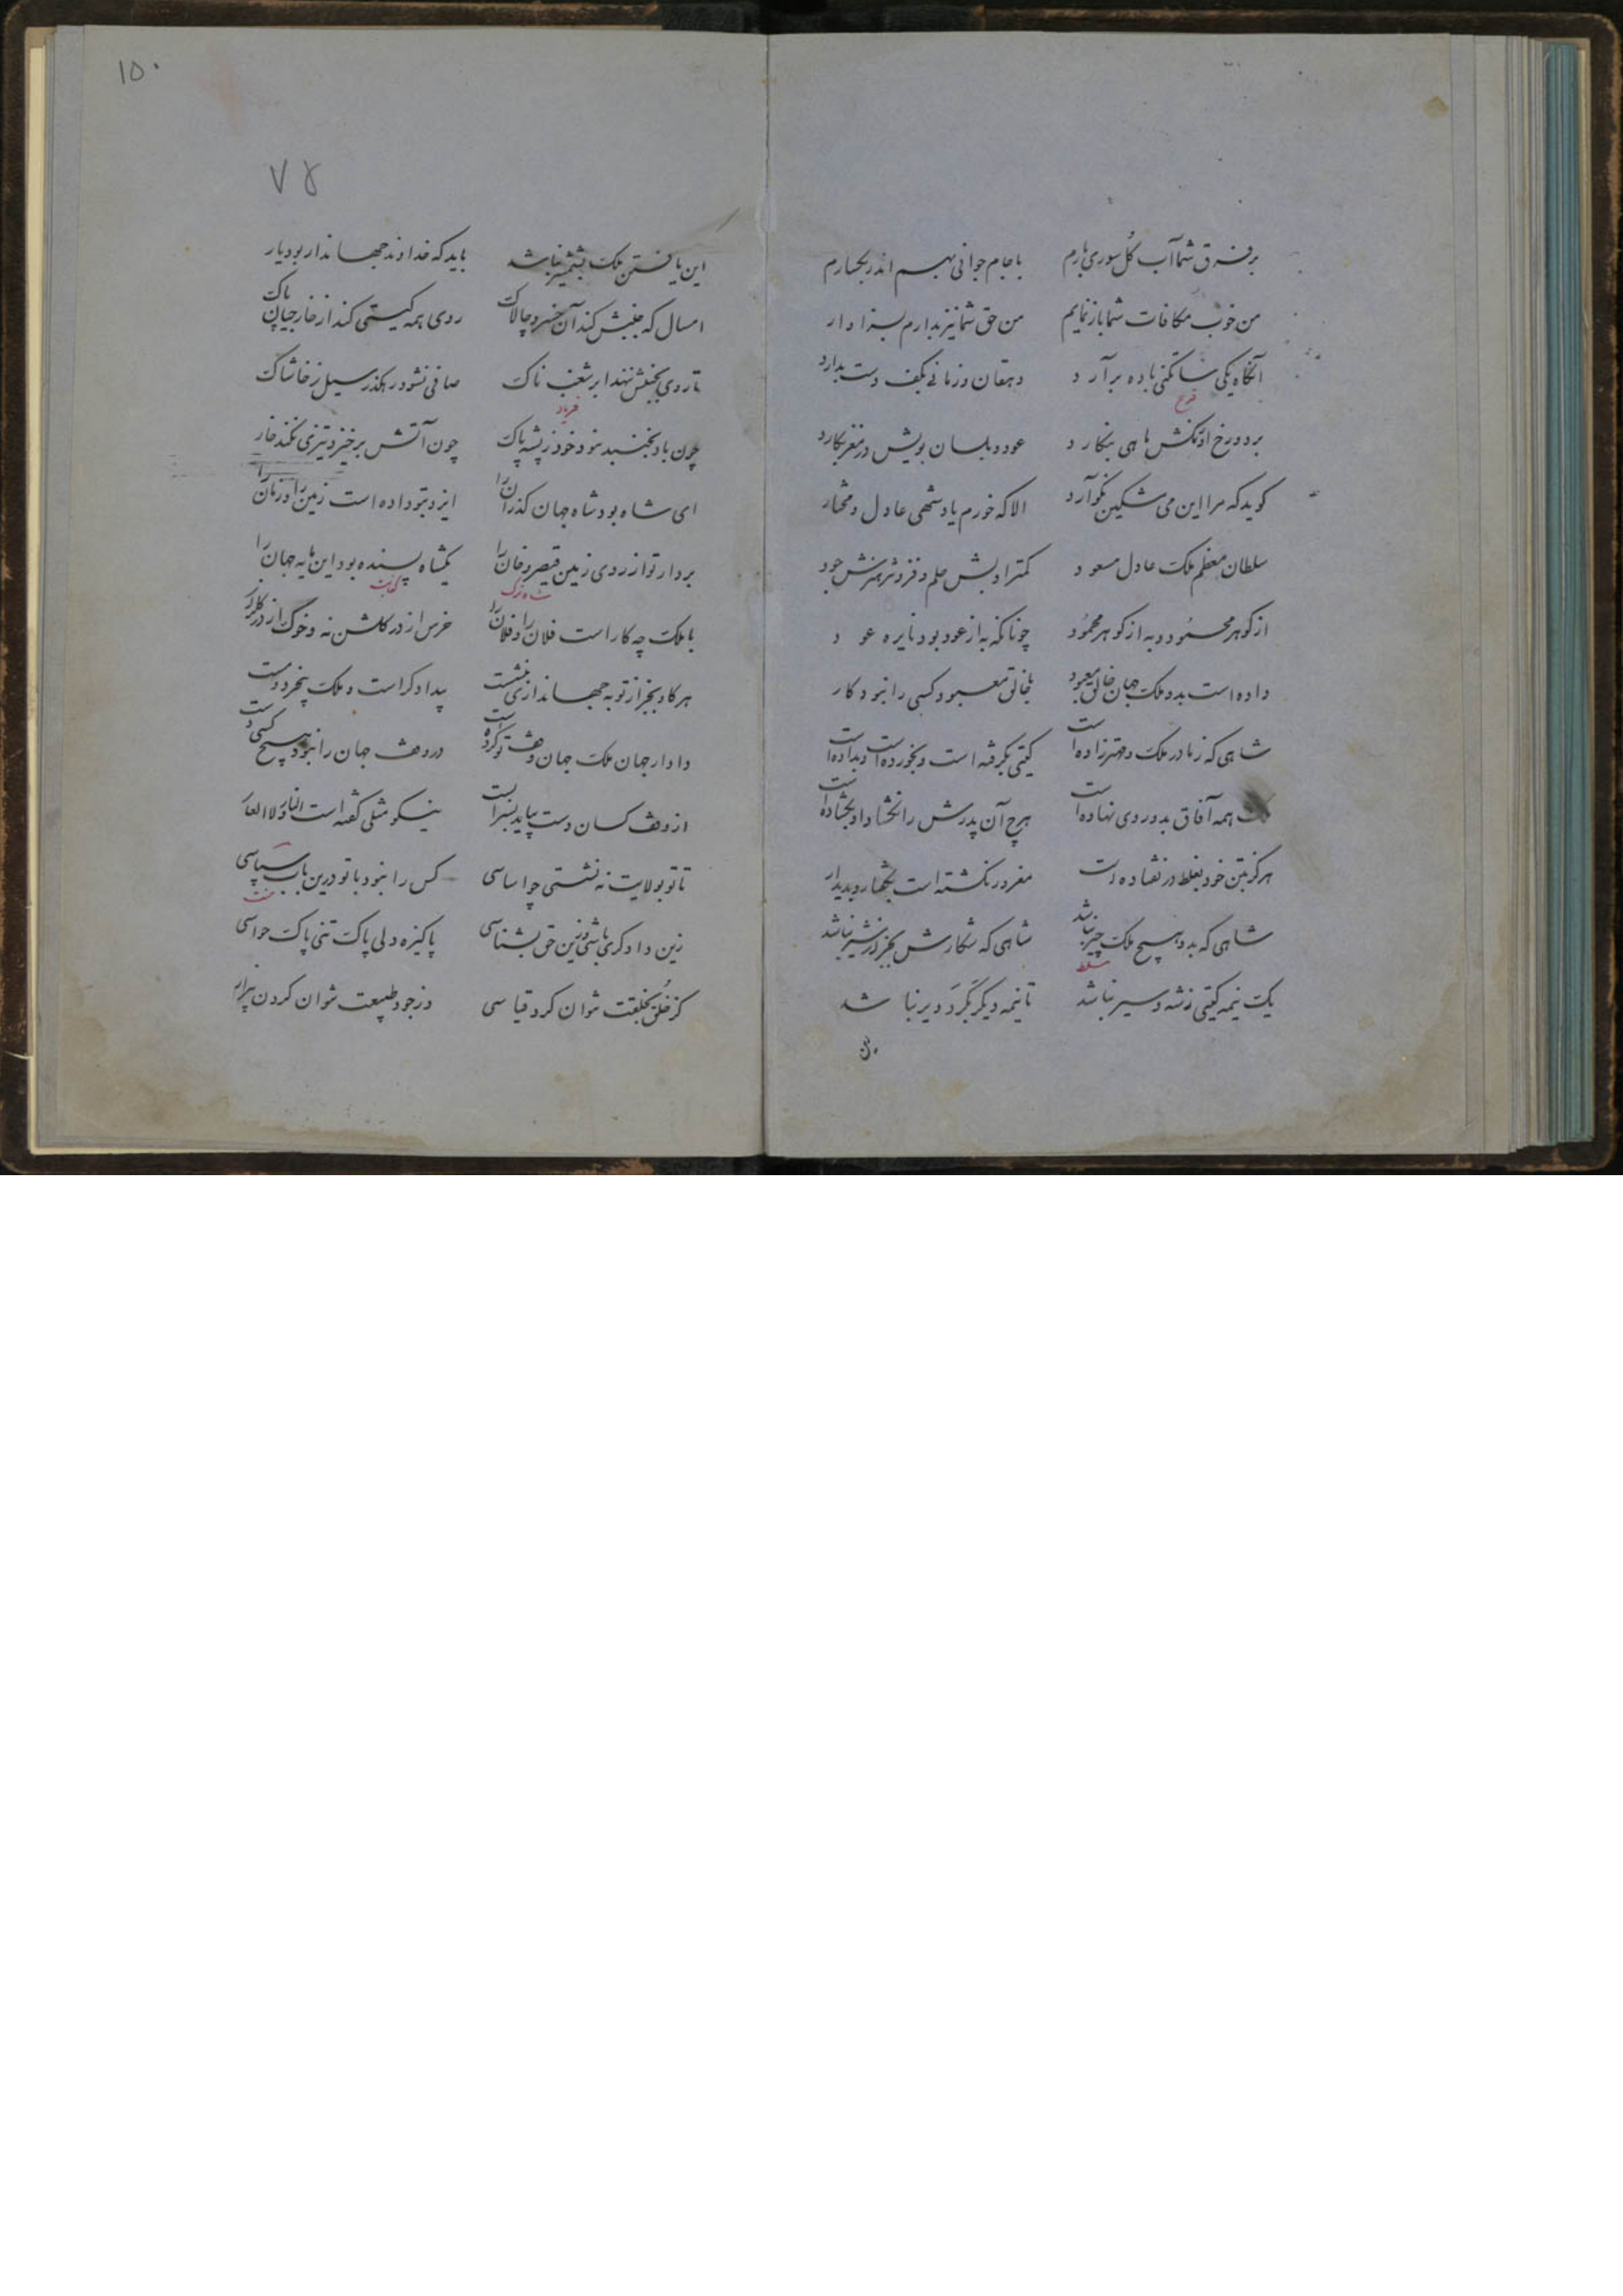 بر فرق شما آب گل سوری بارم با جام جوانی بهم اندر بگسارم
من خوب مکافات شما باز نمایم من حق شما نیز بدارم بسزاوار
آنگاه یکی ساتگنی باده برآرد دهقان و زمانی بکف دست بدارد
قدح
بر دو رخ او رنگش ماهی بنگارد عود و بلسان بویش در مغز بکارد
گوید که مرا این می مشکین نگوارد الا که خورم یاد شهی عادل و مختار
سلطان معظم ملک عادل مسعود کمتر ادبش حلم و فروتر هنرش جود
از گوهر محمود و به از گوهر محمود چونانکه به از عود بود نایره عود
داده است بدو ملک جهان خالق معبود با خالق معبود کسی را نبود کار
شاهی که ز مادر ملک و مهتر زاده است گیتی بگرفته است و بخورده است و بداده است
ملک همه آفاق بدو روی نهاده است هرچ آن پدرش را نگشاد او بگشاده است
هرگز بتن خود بغلط در نفتاده است مغرور نگشته است بگفتار و بدیدار
شاهی که بدو هیچ ملک چیر نباشد شاهی که شکارش بجز از شیر نباشد
مسلط
یک نیمه گیتی زشه و سیر نباشد تا نیمه دیگر بگرد دیر نباشد
۱۵۰
۷۵
این یافتن ملک بشمشیر نباشد باید که خداوند جهاندار بود یار
امسال که جنبش کند آن خسرو چالاک روی همه گیتی کند از خارجیان پاک
تا روی بجنبش ننهد ابر شغب ناک صافی نشود رهگذر سیل ز خاشاک
فریاد
چون باد بجنبد نبود خود ز پشه باک چون آتش برخیزد تیزی نکند خار
ای شاه بود شاه جهان گذران را ایزد بتو داده است زمین را و زمان را
بردار تو از روی زمین قیصر و خان را یکشاه پسنده بود این مایه جهان را
با ملک چه کار است فلان را و فلان را خرس از در گلشن نه و خوک از در گلزار
هر کاو بجز از تو به جهانداری بنشست بیدادگر است و ملک بیخرد و مست
دادار جهان ملک جهان وقف تو کرده است در وقف جهان را نبود هیچ کسی دست
از وقف کسان دست بباید بسزا بست نیکو مثلی گفته است النار و لا العار
تا تو بولایت نه نشستی چو اساسی کس را نبود با تو درین باب سپاسی
منت
زین دادگری باشی و زین حق بشناسی پاکیزه دلی پاک تنی پاک حواسی
کز خلق بخلقت نتوان کرد قیاسی وز جود طبیعت نتوان کردن بیزار